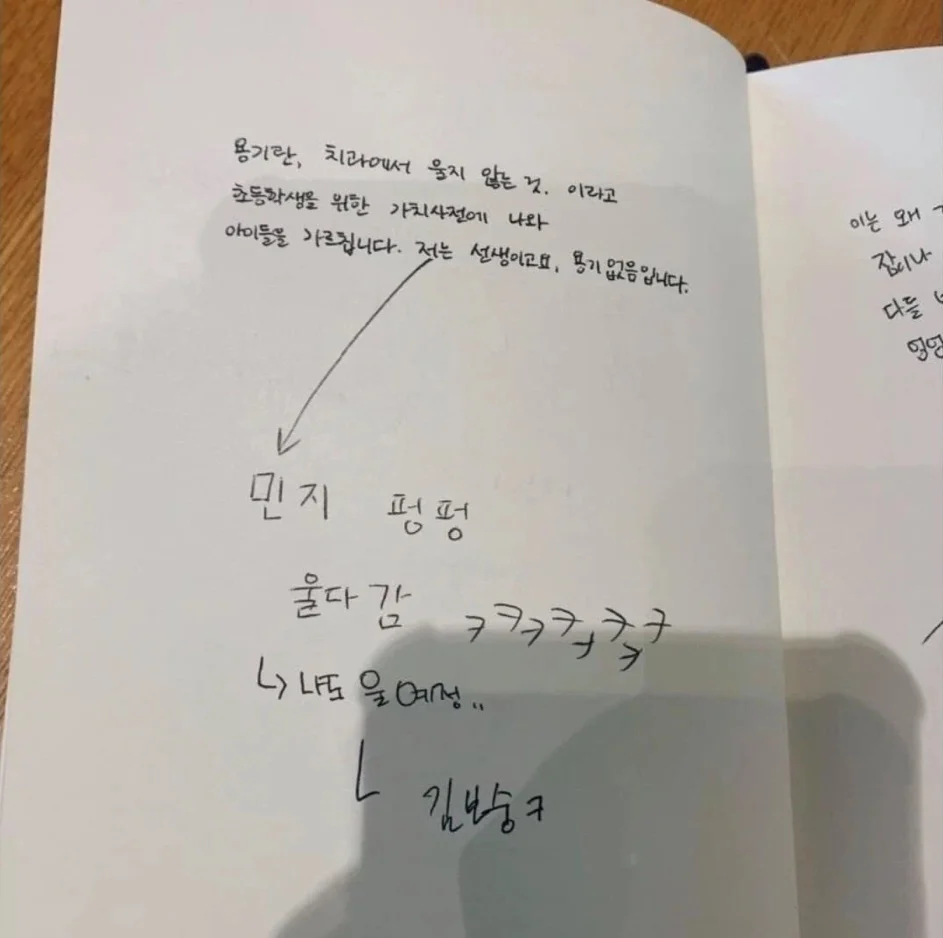 용기란, 치과에서 울지 않는 것. 이라고
초등학생을 위한 가치사전에 나와
아이들을 가르칩니다. 저는 선생이고요, 용기없음입니다.
민지 펑펑
울다 감 ㅋㅋㅋㅋㅋㅋㅋㅋ
↳ 나도 울 예정..
ㄴ 김보승ㅋ
이는 왜
잡이나
다들
엉엉